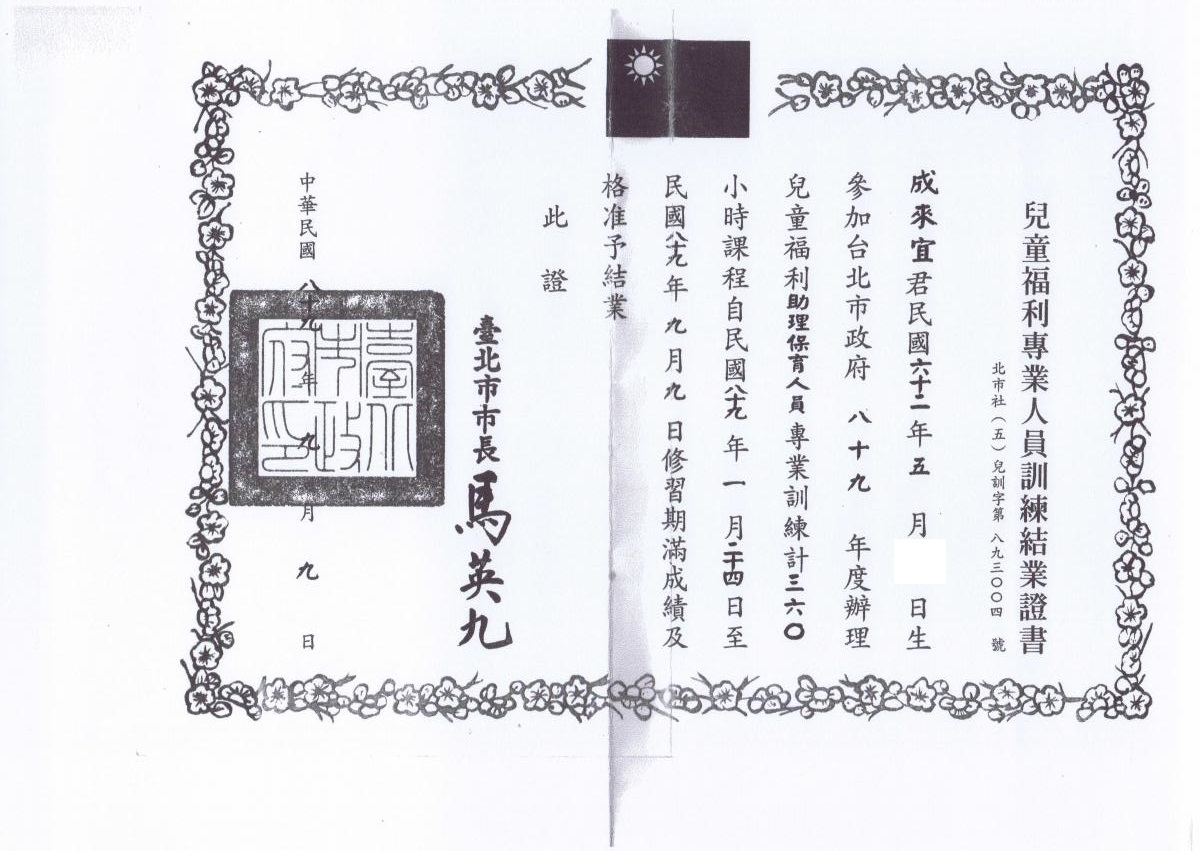 兒童福利專業人員訓練結業證書
北市社（五）兒訓字第 八九三〇〇四 號
成來宜君民國六十二年五 月 日生
參加台北市政府 八十九 年度辦理
兒童福利助理保育人員專業訓練計三六〇
小時課程自民國八十九年一月二十四日至
民國八十九年九月九日修習期滿成績及
格准予結業
此證
臺北市市長 馬英九
臺北市政府印
中華民國 八十九 年 九 月 九 日